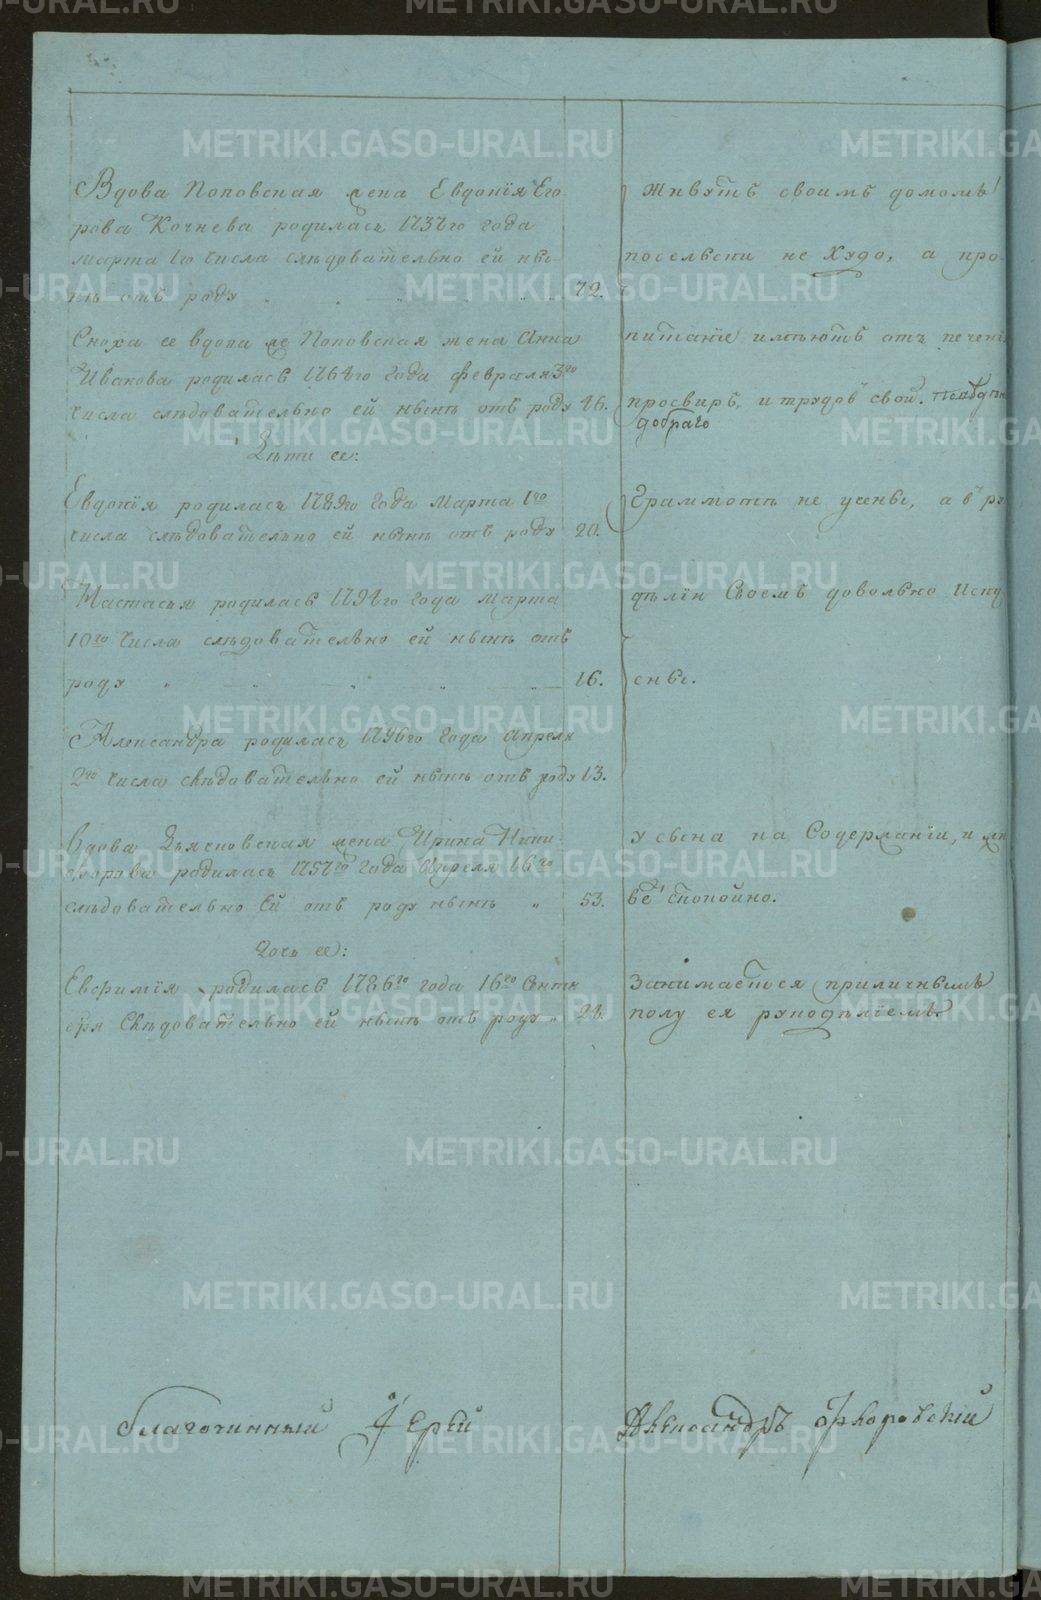 Вдова Поповская жена Евдокія Его
рова Кочнева родилась 1737го года
марта 1го числа слѣдовательно ей ны-
нѣ отъ роду 72.
Сноха ее вдова же Поповская жена Анна
Иванова родилась 1764го года февраля 3го
числа слѣдовательно ей нынѣ отъ роду 46.
Дѣти ее:
Евдокія родилась 1789го года марта 1го
числа слѣдовательно ей нынѣ отъ роду 20.
Настасья родилась 1794го года марта
10го числа слѣдовательно ей нынѣ отъ
роду 16.
Александра родилась 1796го года апреля
2го числа слѣдовательно ей нынѣ отъ роду 13.
Вдова Дьяконовская жена Ирина Ники
форова родилась 1757го года Апреля 16го
слѣдовательно ей отъ роду нынѣ 53.
Дочь ее:
Евфимія родилась 1786го года 16го Сентя
бря слѣдовательно ей нынѣ отъ роду
живутъ своимъ домомъ
посельски не худо, а про-
питаніе имѣютъ отъ печенія
просвиръ, и трудов свой.
добраго
Граммотѣ не учены, а в ру
дѣліи Своемъ довольно Иску
сны.
У сына на Содержаніи, и жи
ветъ спокойно.
Занимается приличнымъ
полу ея рукодѣліемъ
Благочинный Іерей Александръ Флоровскій
METRIKI.GASO-URAL.RU